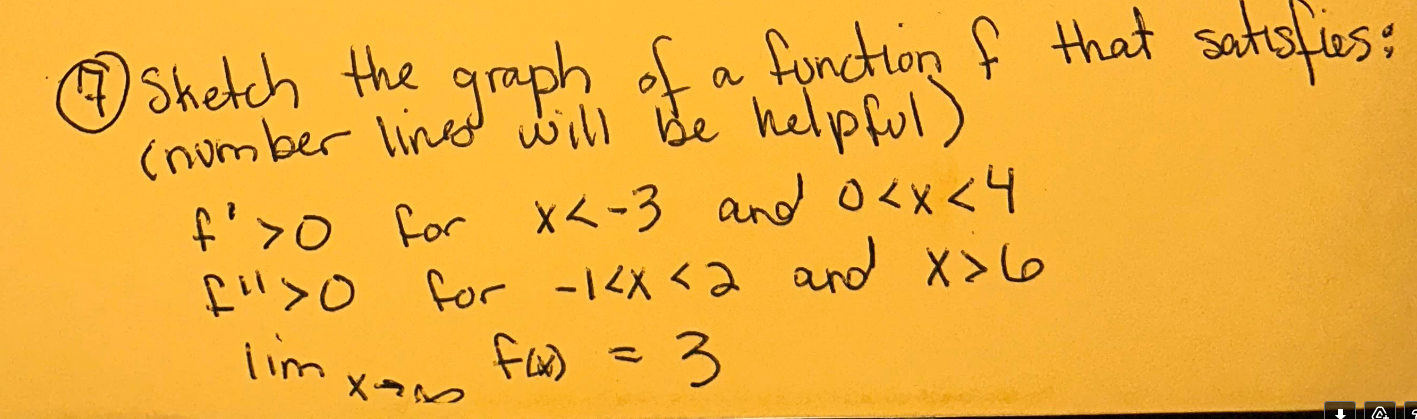 ⑦ Sketch the graph of a function f that satisfies:
(number lines will be helpful)
f' >0 for x<-3 and 0<x<4
f" >0 for -1<x<2 and x>6
lim x→∞ f(x) = 3